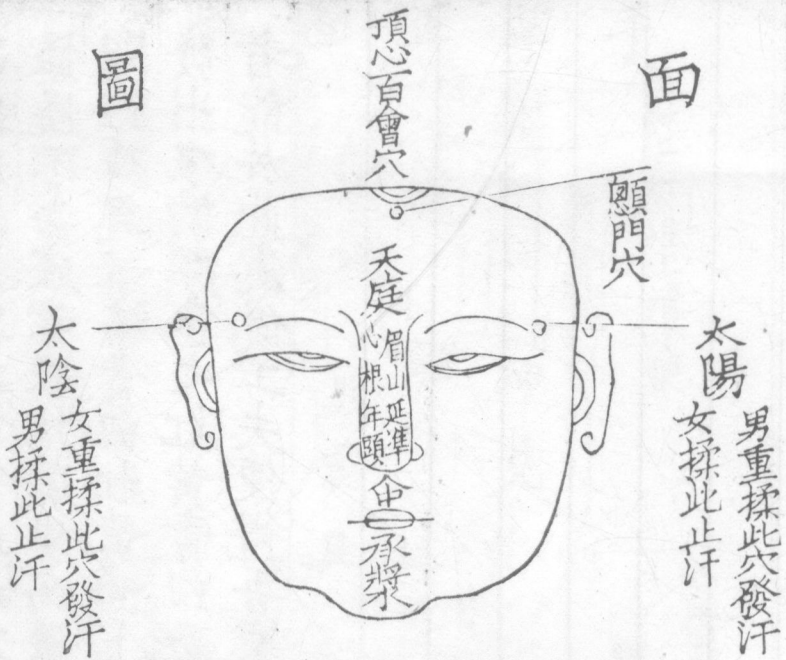 面
圖
頂心百會穴
顖門穴
天庭
眉山延準
心根年
人中
承漿
太陽
男重揉此穴發汗
女揉此止汗
太陰
女重揉此穴發汗
男揉此止汗